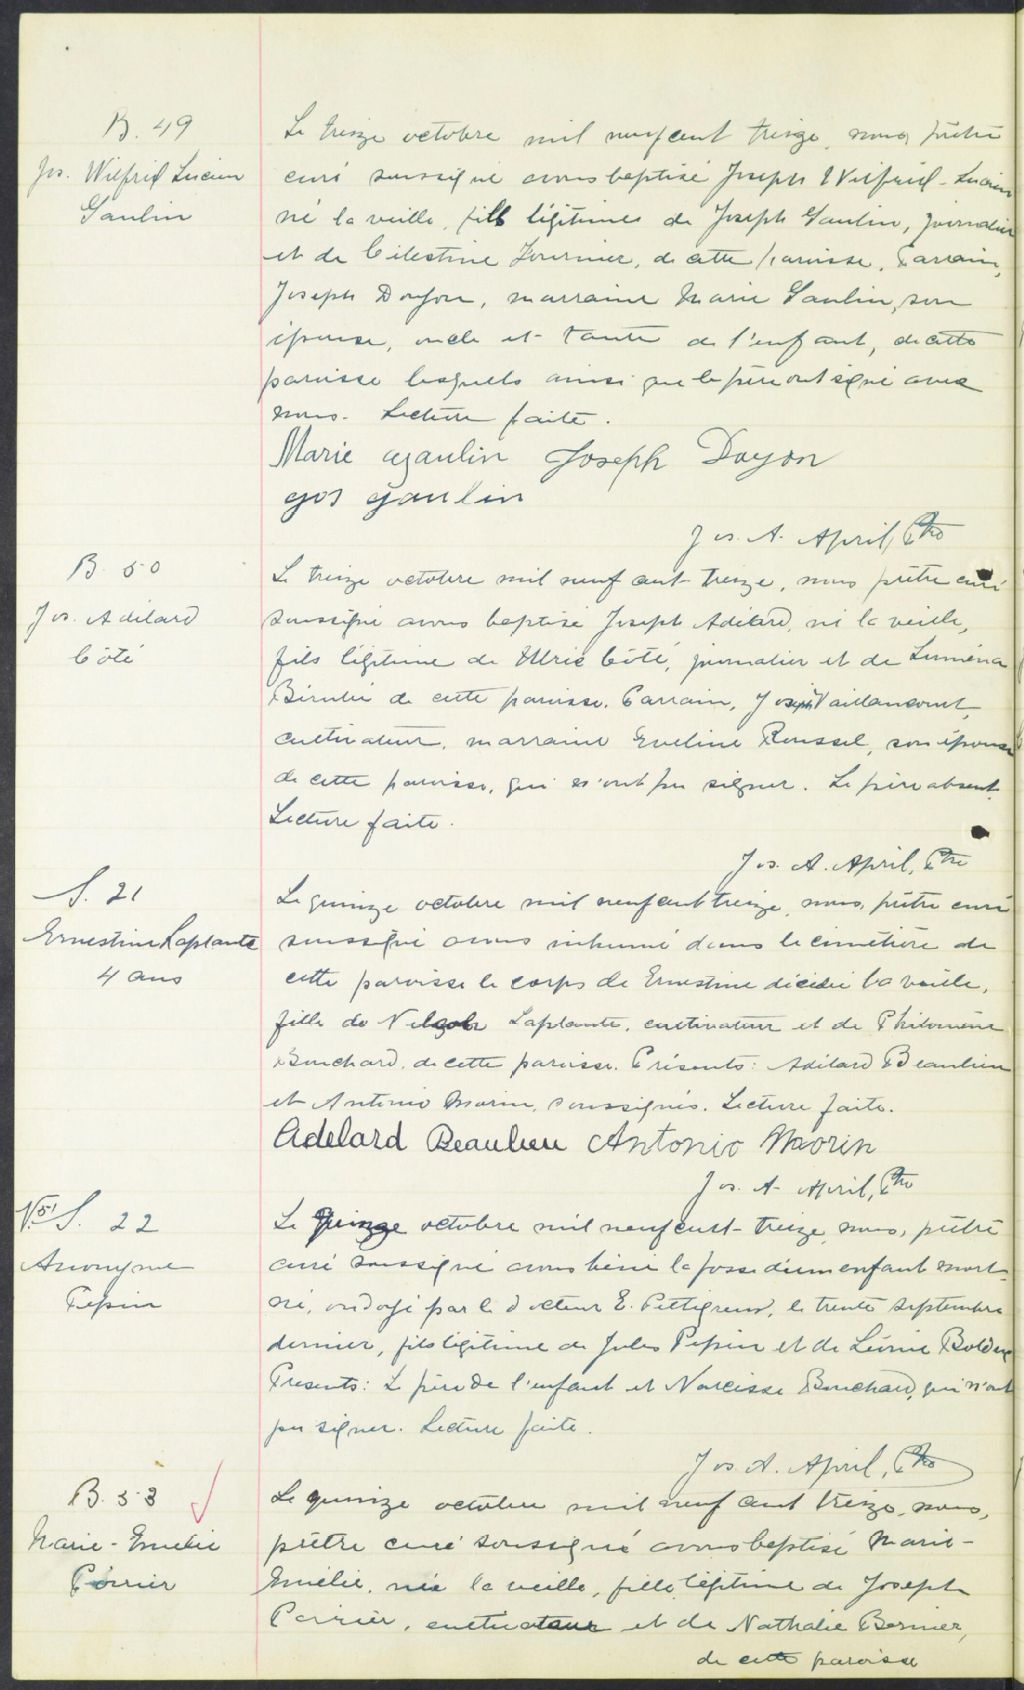 B. 49
Jos. Wilfrid Lucien
Gaulin
Le treize octobre mil neuf cent treize, nous, prêtre
curé soussigné avons baptisé Joseph Wilfrid-Lucien
né la veille, fils légitime de Joseph Gaulin, journalier
et de Célestine Fournier, de cette paroisse. Parrain,
Joseph Doyon, marraine Marie Gaulin, son
épouse, oncle et tante de l'enfant, de cette
paroisse lesquels ainsi que le père ont signé avec
nous. Lecture faite.
Marie Gaulin Joseph Doyon
Jos Gaulin
Jos. A. April, Ptre
B. 50
Jos. Adélard
Côté
Le treize octobre mil neuf cent treize, nous prêtre curé
soussigné avons baptisé Joseph Adélard, né la veille,
fils légitime de Ulric Côté, journalier et de Luména
Bérubé de cette paroisse. Parrain, Joseph Vaillancourt,
cultivateur, marraine Eveline Roussel, son épouse
de cette paroisse, qui n'ont pu signer. Le père absent.
Lecture faite.
Jos. A. April, Ptre
S. 21
Ernestine Laplante
4 ans
Le quinze octobre mil neuf cent treize, nous, prêtre curé
soussigné avons inhumé dans le cimetière de
cette paroisse le corps de Ernestine décédée la veille,
fille de Laplante, cultivateur et de Philomène
Bouchard, de cette paroisse. Présents: Adélard Beaulieu
et Antonio Morin, soussignés. Lecture faite.
Adelard Beaulieu Antonio Morin
Jos. A. April, Ptre
S. 22
Anonyme
Pepin
Le quinze octobre mil neuf cent-treize, nous, prêtre
curé soussigné avons béni la fosse d'un enfant mort-
né, ondoyé par le docteur E. Pettigrew, le trente septembre
dernier, fils légitime de Jules Pepin et de Bolduc
Présents: Le père de l'enfant et Narcisse Bouchard, qui n'ont
pu signer. Lecture faite.
Jos. A. April, Ptre
B. 53
Marie-Emélie
Poirier
Le quinze octobre mil neuf cent treize, nous,
prêtre curé soussigné avons baptisé Marie-
Emélie, née la veille, fille légitime de Joseph
Poirier, cultivateur et de Nathalie Bernier,
de cette paroisse